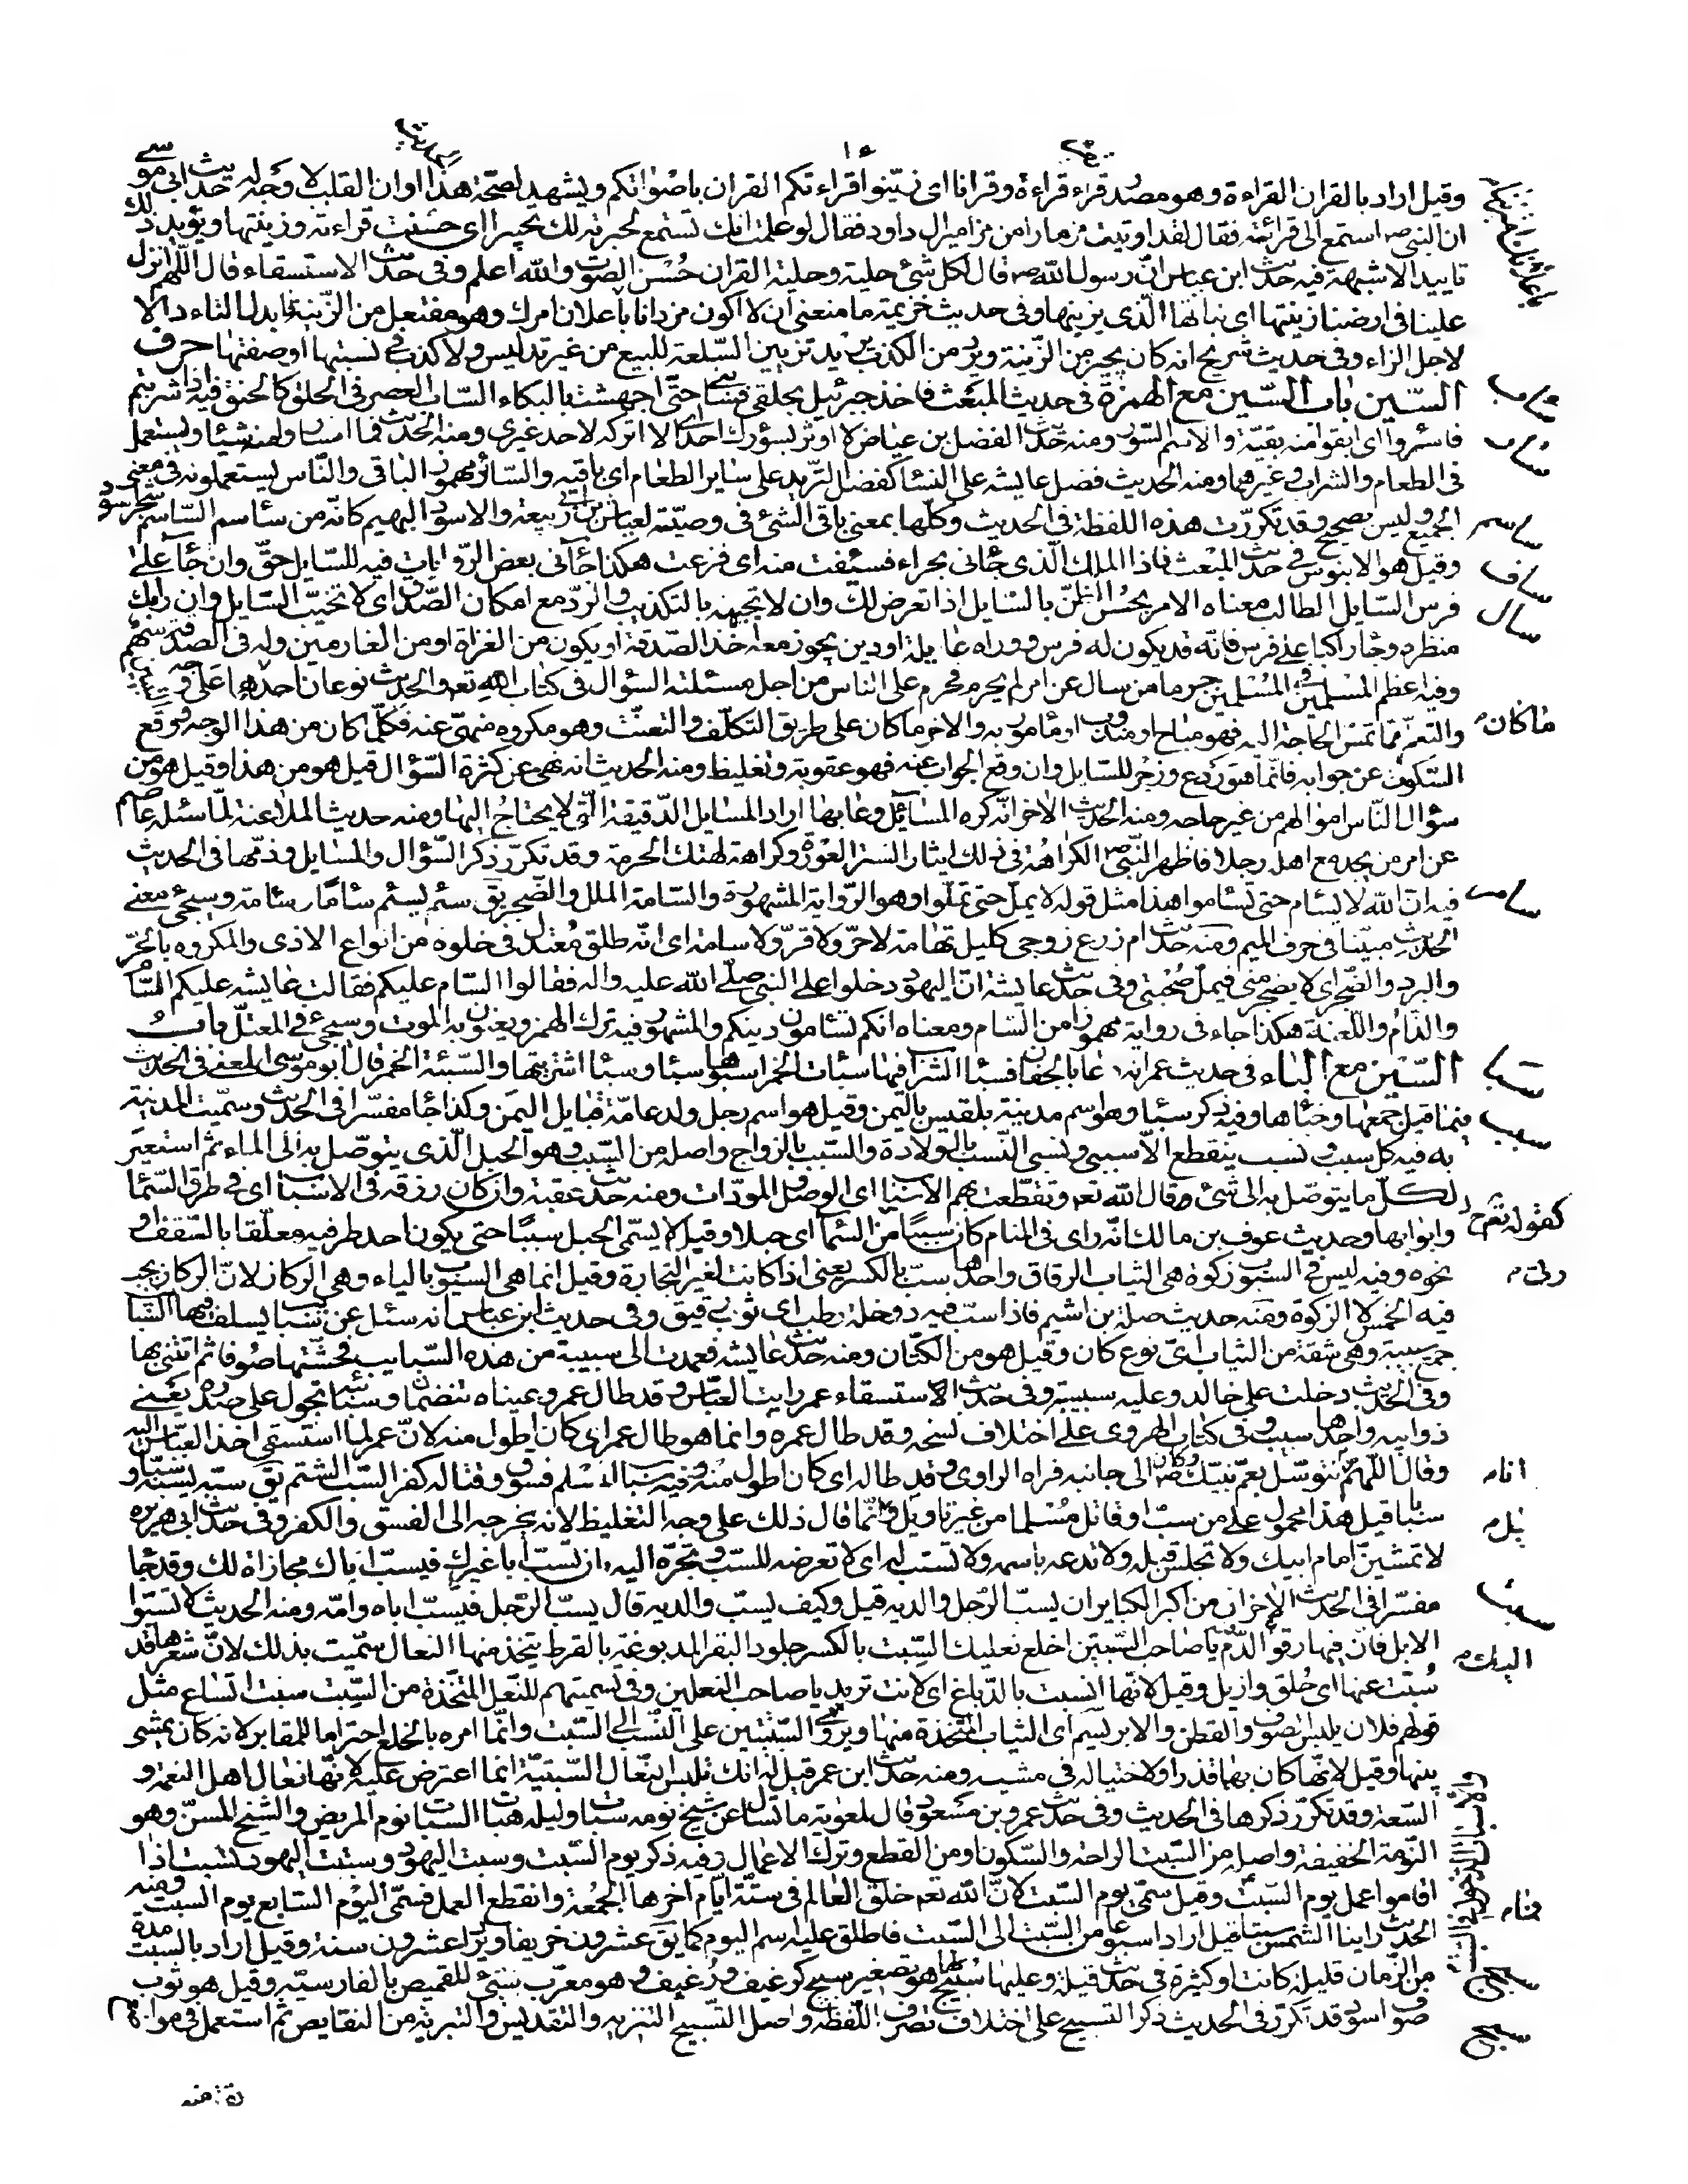 وقيل اراد بالقران القراءة وهو مصدر قرء قراءة وقرانا اى زيّنوا قراءتكم القران باصواتكم ويشهد لصحّة هذا وان القلب لا وجه له حديث ابى موسى
ان النبىّ ص استمع الى قرائته فقال لقد اوتيت مزمارا من مزامير ال داود فقال لو علمت انك تستمع لحبرته لك تحبيرا اى حسّنت قراءته وزينتها ويؤيد ذلك
تاييدا لا شبهة فيه حديث ابن عباس انّ رسول الله ص قال لكل شئ حلية وحلية القران حُسْن الصّوت والله اعلم وفى حديث الاستسقاء قال اللّهم انزل
علينا فى ارضنا زينتها اى نباتها الّذى يزينها وفى حديث خزيمة ما منعنى ان لا اكون مزدانا باعلان امرك وهو مفتعل من الزّينة فابدل التاء دالا
لاجل الزاء وفى حديث شريح انه كان يجيز من الزّينة ويردّ من الكذب يريد تزيين السّلعة للبيع من غير تدليس ولا كذب فى نسبتها او صفتها حرف
السّين باب السّين مع الهمزة فى حديث المبعث فاخذ جبرئيل بحلقى فسأبنى حتّى اجهشت بالبكاء السّاب العصر فى الحلق كالخنق فيه اذا شربتم
فاسئروا اى ابقوا منه بقيّة والاسم السّؤر ومنه حديث الفضل بن عباس لا اوثر بسؤرك احدا اى لا اتركه لاحد غيرى ومنه الحديث فما اسار منه شيئا ويستعمل
فى الطعام والشراب وغيرهما ومنه الحديث فضل عايشه على النساء كفضل الثّريد على ساير الطعام اى باقيه والسّائر مهموز الباقى والنّاس يستعملونه فى معنى
الجميع وليس بصحيح وقد تكرّرت هذه اللفظة فى الحديث وكلّها بمعنى باقى الشئ فى وصيّته لعياش بن ابى ربيعة والاسود البهيم كانّه من سأسم السّاسم شجر اسود
وقيل هو الابنوس فى حديث المبعث فاذا الملك الّذى جائنى بحراء فسئفت منه اى فزعت هكذا جاء فى بعض الرّوايات فيه للسّايل حقّ وان جاء على
فرس السّايل الطالب معناه الامر بحُسْن الظّنّ بالسّايل اذا تعرض لك وان لا تجبهه بالتكذيب والردّ مع امكان الصّدق اى لا تخيّب السّايل وان رابك
منظره وجاء راكبا على فرس فانّه قد يكون له فرس ووراه عايلة او دين يجوز معه اخذ الصّدقة او يكون من الغزاة او من الغارمين وله فى الصدقة سهم
وفيه اعظم المسلمين فى المسلمين جرما من سال عن امر لم يحرم فحرم على الناس من اجل مسئلته السؤال فى كتاب الله تعه والحديث نوعان احدهما على وجه
والتعرّف مما تمسّ الحاجة اليه فهو مباح او مندوب او مامور به والاخر ما كان على طريق التكلّف والتعنّت وهو مكروه منهىّ عنه فكلّما كان من هذا الوجه ووقع
السّكوت عن جوابه فانّما هو ردع وزجر للسّايل وان وقع الجواب عنه فهو عقوبة وتغليظ ومنه الحديث انه نهى عن كثرة السّؤال قيل هو من هذا وقيل هو من
سؤال النّاس اموالهم من غير حاجه ومنه الحديث الاخر انّه كره المسائل وعابها اراد المسايل الدّقيقة الّتى لا يحتاج اليها ومنه حديث الملاعنة لمّا سئله عاصم
عن امر من يجد مع اهله رجلا فاظهر النّبى ص الكراهة فى ذلك ايثارا لستر العورة وكراهة لهتك الحرمة وقد تكرّر ذكر السّؤال والمسايل وذمّها فى الحديث
فيه انّ الله لا يسئام حتى تسئاموا هذا مثل قوله لا يملّ حتى تملّوا وهو الرّواية المشهورة والسّامة الملل والضّجر يق سئم يسئم سئاما وسئامة وسيجئ معنى
الحديث مبيّنا فى حرف الميم ومنه حديث ام زرع زوجى كليل تهامة لا حرّ ولا قرّ ولا سامة اى انّه طلق معتدل فى خلوه من انواع الاذى والمكروه بالحرّ
والبرد والضّجر اى لا يضجر منى فيملّ صُحْبتى وفى حديث عايشة انّ اليهود دخلوا على النبى صلّى الله عليه واله فقالوا السّام عليكم فقالت عايشه عليكم السّام
والذّام واللّعنة هكذا جاء فى رواية مهموزا من السّام ومعناه انكم تسئامون دينكم والمشهور فيه ترك الهمز ويعنون به الموت وسيجئ فى المعتلّ باب
السّين مع الباء فى حديث عمر انه دعا بالجفان فسبئا الشراب فيها سبئات الخمر اسبؤها سبئا وسبئا اشتريتها والسّبئة الخمر قال ابو موسى المعنى فى الحديث
فيما قيل جمعها وخبّأها وفيه ذكر سبئا وهو اسم مدينة بلقيس باليمن وقيل هو اسم رجل ولد عامّة قبايل اليمن وكذا جاء مفسّرا فى الحديث وسمّيت المدينة
به فيه كل سبب ونسب ينقطع الا سببى ونسبى النّسب بالولادة والسّبب بالزواج واصله من السّبب وهو الحبل الّذى يتوصّل به الى الماء ثم استعير
لكلّ ما يتوصّل به الى شئ وقال الله تعه وتقطّعت بهم الاسباب اى الوصل والمودّات ومنه حديث عقبة وان كان رزقه فى الاسباب اى فى طرق السّماء
وابوابها وحديث عوف بن مالك انّه راى فى المنام كان سببًا من السّماء اى حبلا وقيل لا يسمّى الحبل سببًا حتى يكون احد طرفيه معلّقا بالسّقف او
نحوه وفيه ليس فى السّبوب زكوة هى الثياب الرقاق واحدها سبّ بالكسر يعنى اذا كانت لغير التجارة وقيل انما هى السيوب بالياء وهى الركاز لانّ الركاز يجب
فيه الخمس لا الزكوة ومنه حديث صلة بن اشيم فاذا سبّ فيه دوخلة رطب اى ثوب رقيق وفى حديث ابن عباس انه سئل عن سبايب يسلف فيها السّبايب
جمع سبيبة وهى شقة من الثياب اىّ نوع كان وقيل هو من الكتّان ومنه حديث عايشه فعمدت الى سبيبة من هذه السّبايب فحشتها صوفا ثم اتتنى بها
وفى الحديث دخلت على خالد وعليه سبيبة وفى حديث الاستسقاء عمر رايت العبّاس وقد طال عمر وعيناه تنضمّان وسبايبه تجول على صدره يعنى
ذوايبه واحدها سبيب وفى كتاب الهروى على اختلاف نسخه وقد طال عمره وانما هو طال عمر اى كان اطول منه لانّ عمر لما استسقى اخذ العبّاس اليه
وقال اللّهمّ نتوسّل بعمّ نبيّك وكان الى جانبه فراه الراوى وقد طاله اى كان اطول منه وفيه سباب المسلم فسوق وقتاله كفر السّبّ الشتم يق سبّه يسبّه سبّا و
سبابا قيل هذا محمول على من سبّ او قاتل مُسْلما من غير تاويل وانّما قال ذلك على وجه التغليظ لا انه يخرجه الى الفسق والكفر وفى حديث ابى هريره
لا تمشينّ امام ابيك ولا تجلس قبله ولا تدعه باسمه ولا تستب له اى لا تعرضه للسّب وتجرّه اليه ان تسبّ ابا غيرك فيسبّ اباك مجازاة لك وقد جاء
مفسّرا فى الحديث الاخر ان من اكبر الكباير ان يسبّ الرّجل والديه قيل وكيف يسبّ والديه قال يسبّ الرّجل فيسبّ اباه وامّه ومنه الحديث لا تسبّوا
الابل فانّ فيها رقوء الدّم يا صاحب السّبتين اخلع نعليك السّبت بالكسر جلود البقر المدبوغة بالقرظ يتخذ منها النعال سمّيت بذلك لانّ شعرها قد
سُبت عنها اى حُلق وازيل وقيل لانّها انسبت بالدّباغ اى لانت تريد يا صاحب النعلين وفى تسميتهم للنّعل المتّخذة من السّبت سبتا اتساع مثل
قولهم فلان يلبس الصّوف والقطن والابريسم اى الثياب المتّخذة منها ويروى السّبتيّتين على النّسب الى السّبت وانّما امره بالخلع احتراما للمقابر لانه كان يمشى
بينها وقيل لانّها كان بها قذر او لاختياله فى مشيه ومنه حديث ابن عمر قيل له انك تلبس النّعال السّبتيّة انما اعترض عليه لانّها نعال اهل النعمة و
السّعة وقد تكرّر ذكرها فى الحديث وفى حديث عمرو بن مسعود قال لمعوية ما تسئل عن شيخ نومه سبات وليله هبات السبات نوم المريض والشيخ المسنّ وهو
النّومة الخفيفة واصله من السّبت الراحة والسّكون او من القطع وترك الاعمال وفيه ذكر يوم السّبت وسبت اليهود وسبتت اليهود تسبت اذا
اقاموا عمل يوم السّبت وقيل سمّى يوم السّبت لانّ الله تعه خلق العالم فى ستّة ايّام اخرها الجمعة وانقطع العمل فسمّى اليوم السّابع يوم السبت ومنه
الحديث راينا الشمس سبتا قيل اراد اسبوعا من السّبت الى السّبت فاطلق عليه اسم اليوم كما يق عشرون خريفا ويراد عشرون سنة وقيل اراد بالسبت مدة
من الزّمان قليلة كانت او كثيرة فى حديث قيلة وعليها سُبيّج لها هو تصغير سبيج كرغيف ورُغيّف وهو معرّب شبىّ للقميص بالفارسيّة وقيل هو ثوب
صوف اسود قد تكرّر فى الحديث ذكر التسبيح على اختلاف تصرّف اللّفظة واصل التّسبيح التنزيه والتقديس والتبرئة من النقايص ثم استعمل فى مواضع
ساب
سار
ساسم
ساف
سال
ما كان
سام
سبا
سبب
كقوله تعه
سبت
اليك
سبج
سبح